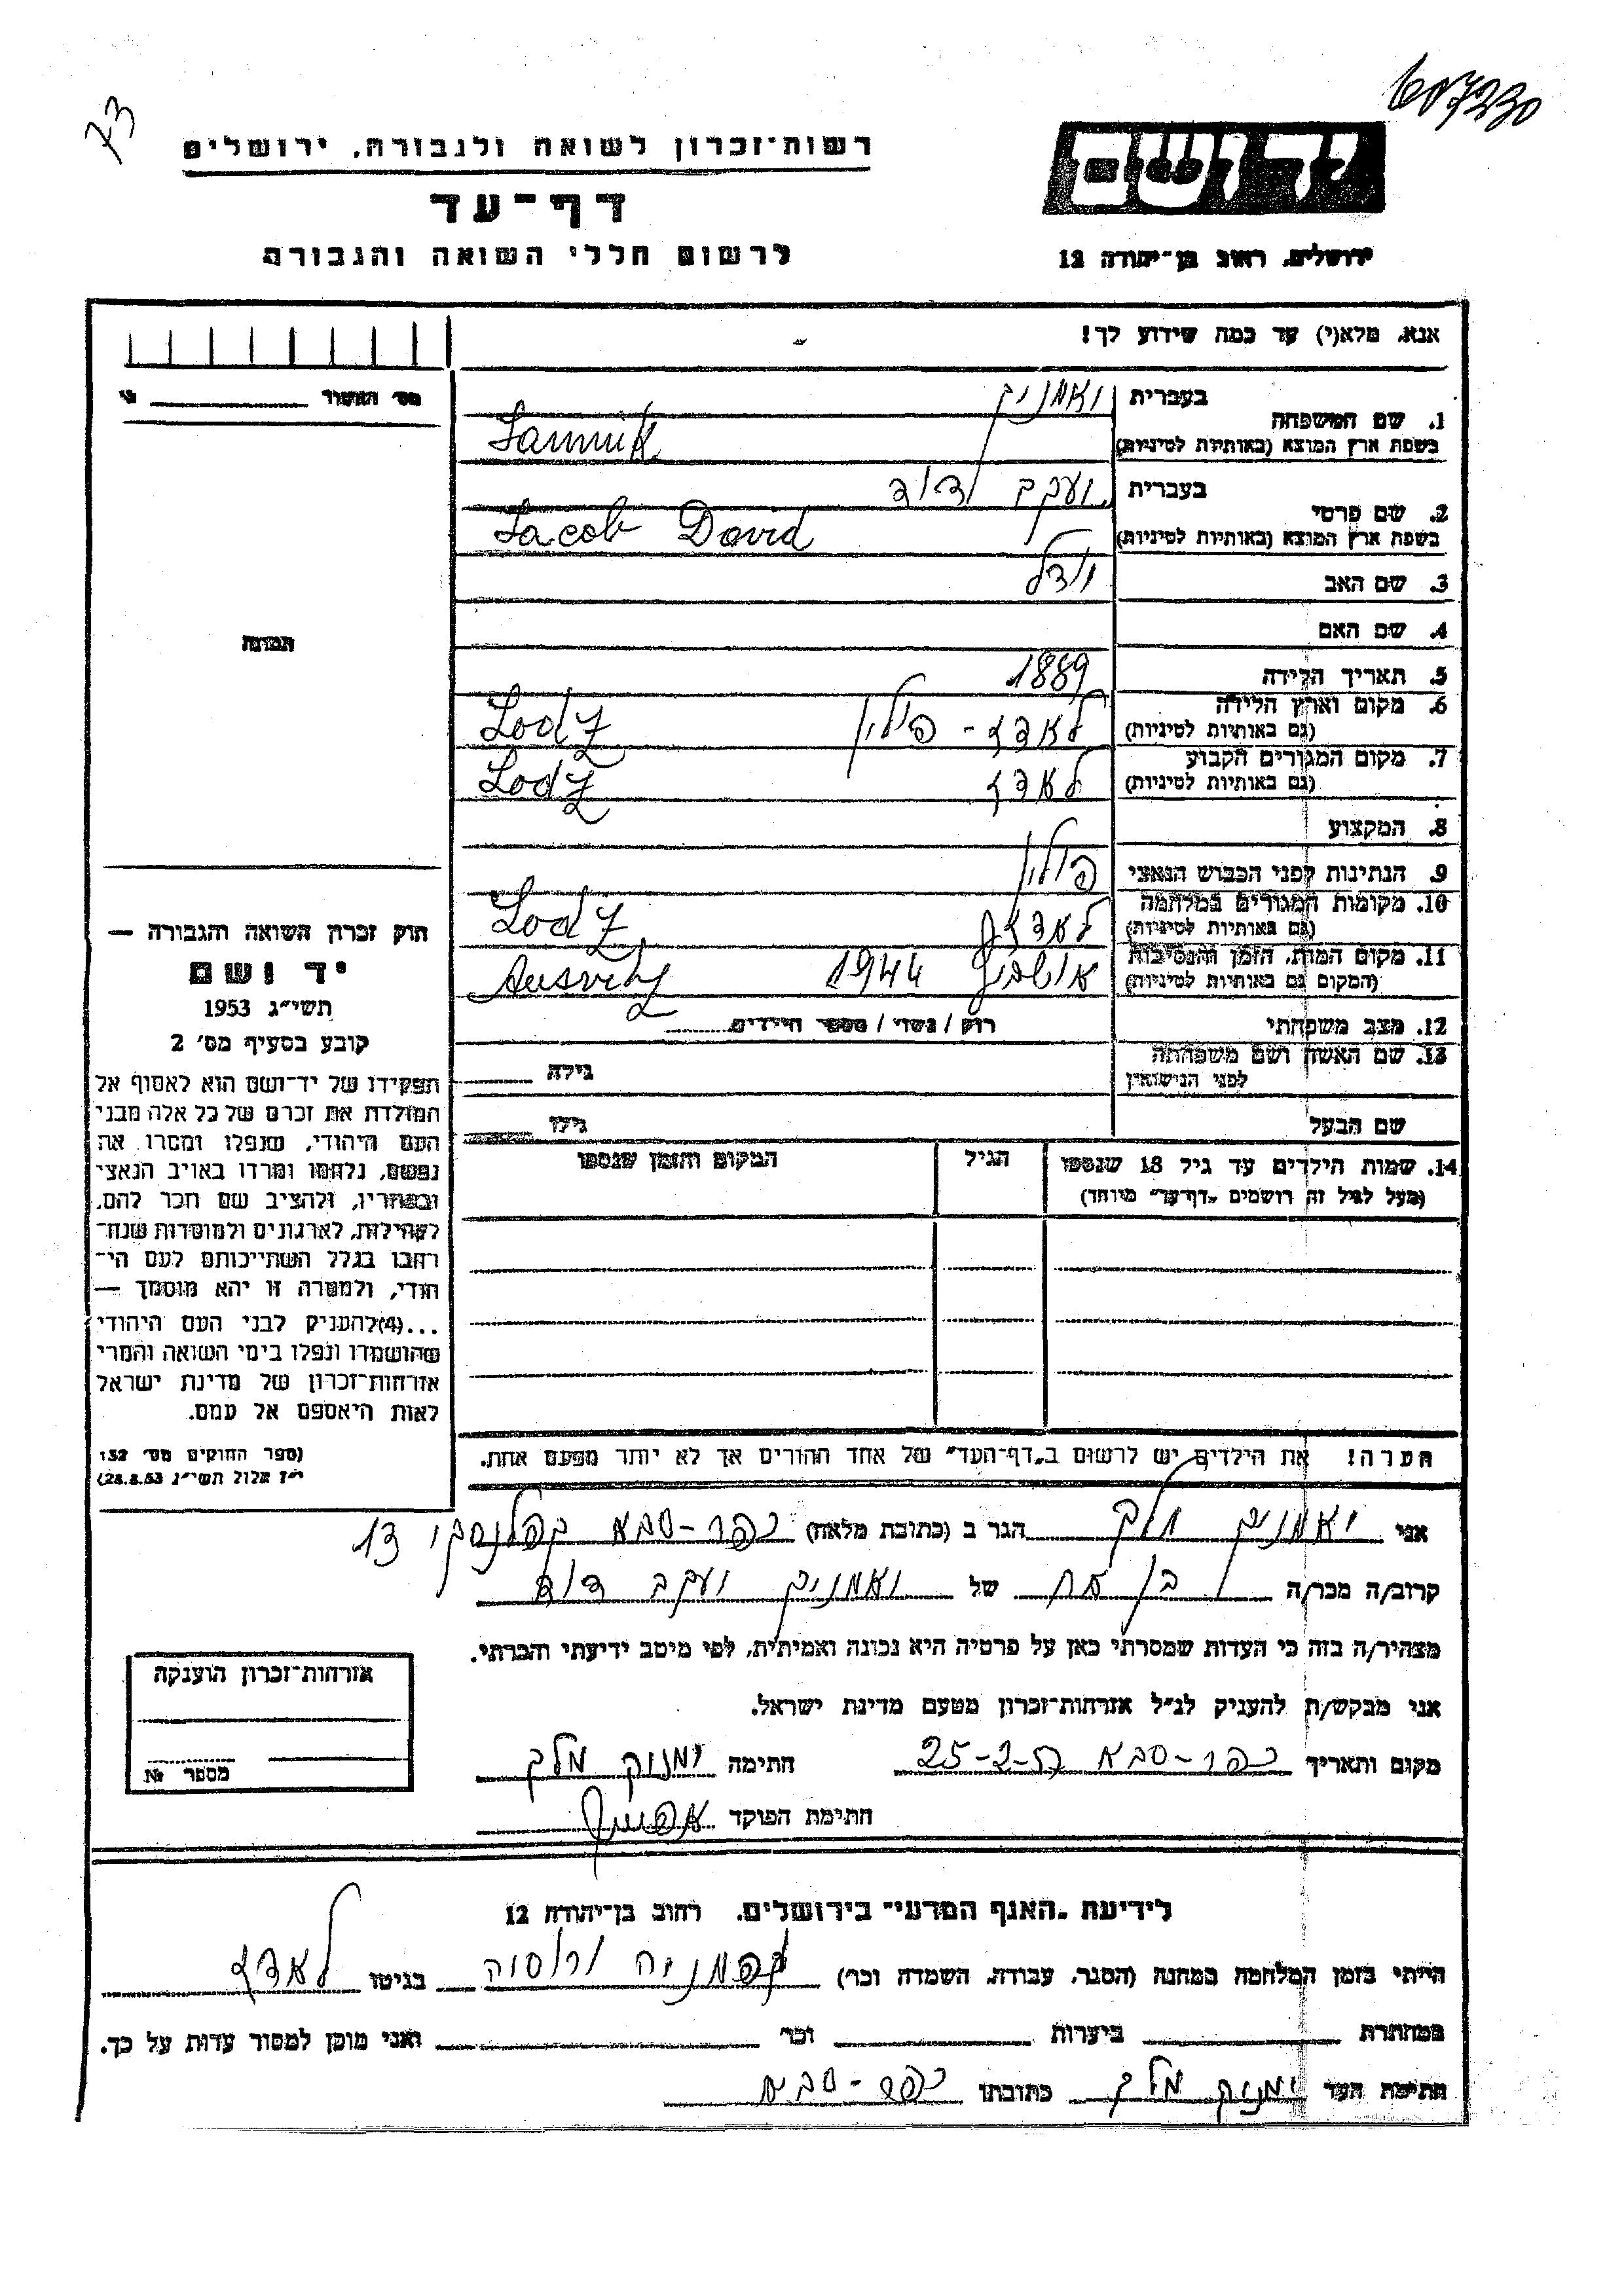 607230
73
יד ושם
ירושלים, רחוב בן־יהודה 12
רשות־זכרון לשואה ולגבורה, ירושלים
דף־עד
לרשום חללי השואה והגבורה
אנא, מלא(י) עד כמה שידוע לך!
מס׳ האשור
1. שם המשפחה
בעברית יאמניק
בשפת ארץ המוצא (באותיות לטיניות) Jamnik
2. שם פרטי
בעברית יעקב דוד
בשפת ארץ המוצא (באותיות לטיניות) Jacob David
3. שם האב יודל
4. שם האם
5. תאריך הלידה 1889
6. מקום וארץ הלידה לאדז - פולין Lodz
(גם באותיות לטיניות)
7. מקום המגורים הקבוע לאדז Lodz
(גם באותיות לטיניות)
8. המקצוע
9. הנתינות לפני הכבוש הנאצי פולין
10. מקומות המגורים במלחמה לאדז Lodz
(גם באותיות לטיניות)
11. מקום המות, הזמן והנסיבות אושביץ 1944 Ausvitz
(המקום גם באותיות לטיניות)
12. מצב משפחתי רוק / נשוי / מספר הילדים
13. שם האשה ושם משפחתה
לפני הנישואין גילה
שם הבעל גילו
14. שמות הילדים עד גיל 18 שנספו הגיל המקום והזמן שנספו
(מעל לגיל זה רושמים „דף־עד״ מיוחד)
תמונה
חוק זכרון השואה והגבורה —
יד ושם
תשי״ג 1953
קובע בסעיף מס׳ 2
תפקידו של יד־ושם הוא לאסוף אל
המולדת את זכרם של כל אלה מבני
העם היהודי, שנפלו ומסרו את
נפשם, נלחמו ומרדו באויב הנאצי
ובעוזריו, ולהציב שם וזכר להם,
לקהילות, לארגונים ולמוסדות שנח־
רבו בגלל השתייכותם לעם הי־
הודי, ולמטרה זו יהא מוסמך —
...(4)להעניק לבני העם היהודי
שהושמדו ונפלו בימי השואה והמרי
אזרחות־זכרון של מדינת ישראל
לאות היאספם אל עמם.
(ספר החוקים מס׳ 132
י״ז אלול תשי״ג 28.8.53)
הערה! את הילדים יש לרשום ב„דף־העד״ של אחד ההורים אך לא יותר מפעם אחת.
אני יאמניק מלך הגר ב (כתובת מלאה) כפר-סבא קפלנסקי 13
קרוב/ה מכר/ה בן אח של יאמניק יעקב דוד
מצהיר/ה בזה כי העדות שמסרתי כאן על פרטיה היא נכונה ואמיתית, לפי מיטב ידיעתי והכרתי.
אני מבקש/ת להעניק לנ״ל אזרחות־זכרון מטעם מדינת ישראל.
מקום ותאריך כפר-סבא 25-2-57 חתימה ימניק מלך
חתימת הפוקד
אזרחות־זכרון הוענקה
מספר №
לידיעת „האגף המדעי״ בירושלים, רחוב בן־יהודה 12
הייתי בזמן המלחמה במחנה (הסגר, עבודה, השמדה וכו׳) גרמניה ורוסיה בגיטו לאדז
במחתרת ביערות וכו׳ ואני מוכן למסור עדות על כך.
חתימת העד ימניק מלך כתובתו כפר-סבא